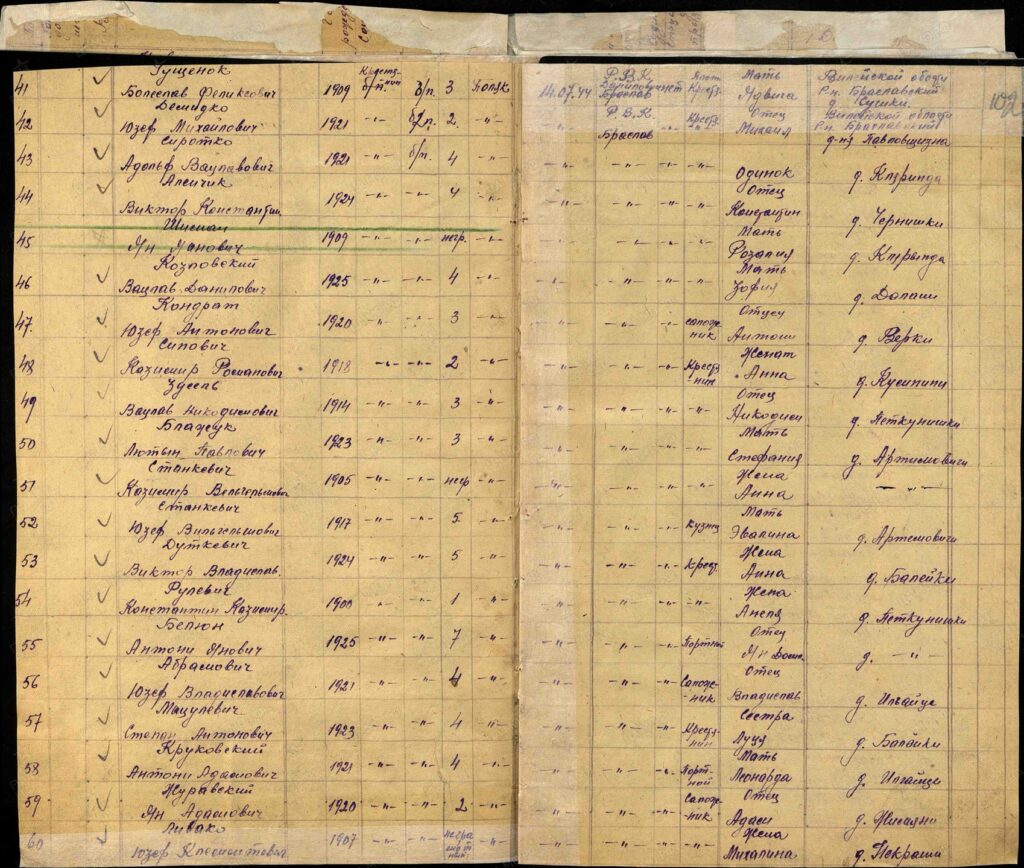 41 Гущенок 1909 Крестьянин б/п. б/п. 3 Поляк 14.07.44 Р.В.К. Браслав Крест. Мать Вилейской области
Болеслав Феликсович Ядвига Р-н. Браславский д. Сушки. 102
42 Демидко 1921 -"- б/п. 2 -"- -"- Р.В.К. Браслав -"- Крест. Отец Вилейской области
Юзеф Михайлович Михаил Р-н. Браславский д-ня Павловщизна
43 Сиротко 1921 -"- б/п. 4 -"- -"- -"- -"- -"-
Адольф Вацлавович Одинок
44 Алейчик 1924 -"- -"- 4 -"- -"- -"- -"- -"- Отец
Виктор Константин. Константин д. Чернишки
45 1909 -"- -"- негр. -"- -"- -"- -"- -"- Мать
Ян Янович Розалия
46 Козловский 1925 -"- -"- 4 -"- -"- -"- -"- -"- Мать
Вацлав Данилович Зофия
47. Кондрат 1920 -"- -"- 3 -"- -"- -"- -"- сапожник Отец
Юзеф Антонович Антони д. Верки
48 Сипович 1918 -"- -"- 2 -"- -"- -"- -"- Крестьянин Женат
Казимир Романович Анна
49 1914 -"- -"- 3 -"- -"- -"- -"- -"- Отец
Вацлав Никодимович Никодим д. Петкунишки
50 Блажук 1923 -"- -"- 3 -"- -"- -"- -"- -"- Мать
Павлович Стефания д. Артемовичи
51 Станкевич 1905 -"- -"- негр -"- -"- -"- -"- -"- Жена
Казимир Вильгельмович Анна -"-
52 Станкевич 1917 -"- -"- 5 -"- -"- -"- -"- кузнец Мать
Юзеф Вильгельмович Эвалина д. Артемовичи
53 Дуткевич 1924 -"- -"- 5 -"- -"- -"- -"- Крест. Жена
Виктор Владислав. Анна д. Балейки
54 Рулевич 1900 -"- -"- 1 -"- -"- -"- -"- -"- Жена
Константин Казимир. Анеля д. Петкунишки
55 Белюн 1925 -"- -"- 7 -"- -"- -"- -"- Портной Отец
Антони Янович Ян д. -"-
56 Абрамович 1921 -"- -"- 4 -"- -"- -"- -"- Сапожник Отец
Юзеф Владиславович Владислав
57 Мацулевич 1923 -"- -"- 4 -"- -"- -"- -"- Крестьянин Сестра
Степан Антонович Луця
58 Круковский 1921 -"- -"- 4 -"- -"- -"- -"- Портной Мать
Антони Адамович Леонарда
59 Журавский 1920 -"- -"- 2 -"- -"- -"- -"- Сапожник Отец
Ян Адамович Адам
60 Ливако 1907 -"- -"- неграмотный -"- -"- -"- -"- -"- Жена
Юзеф Клементович Михалина д. Пекраши